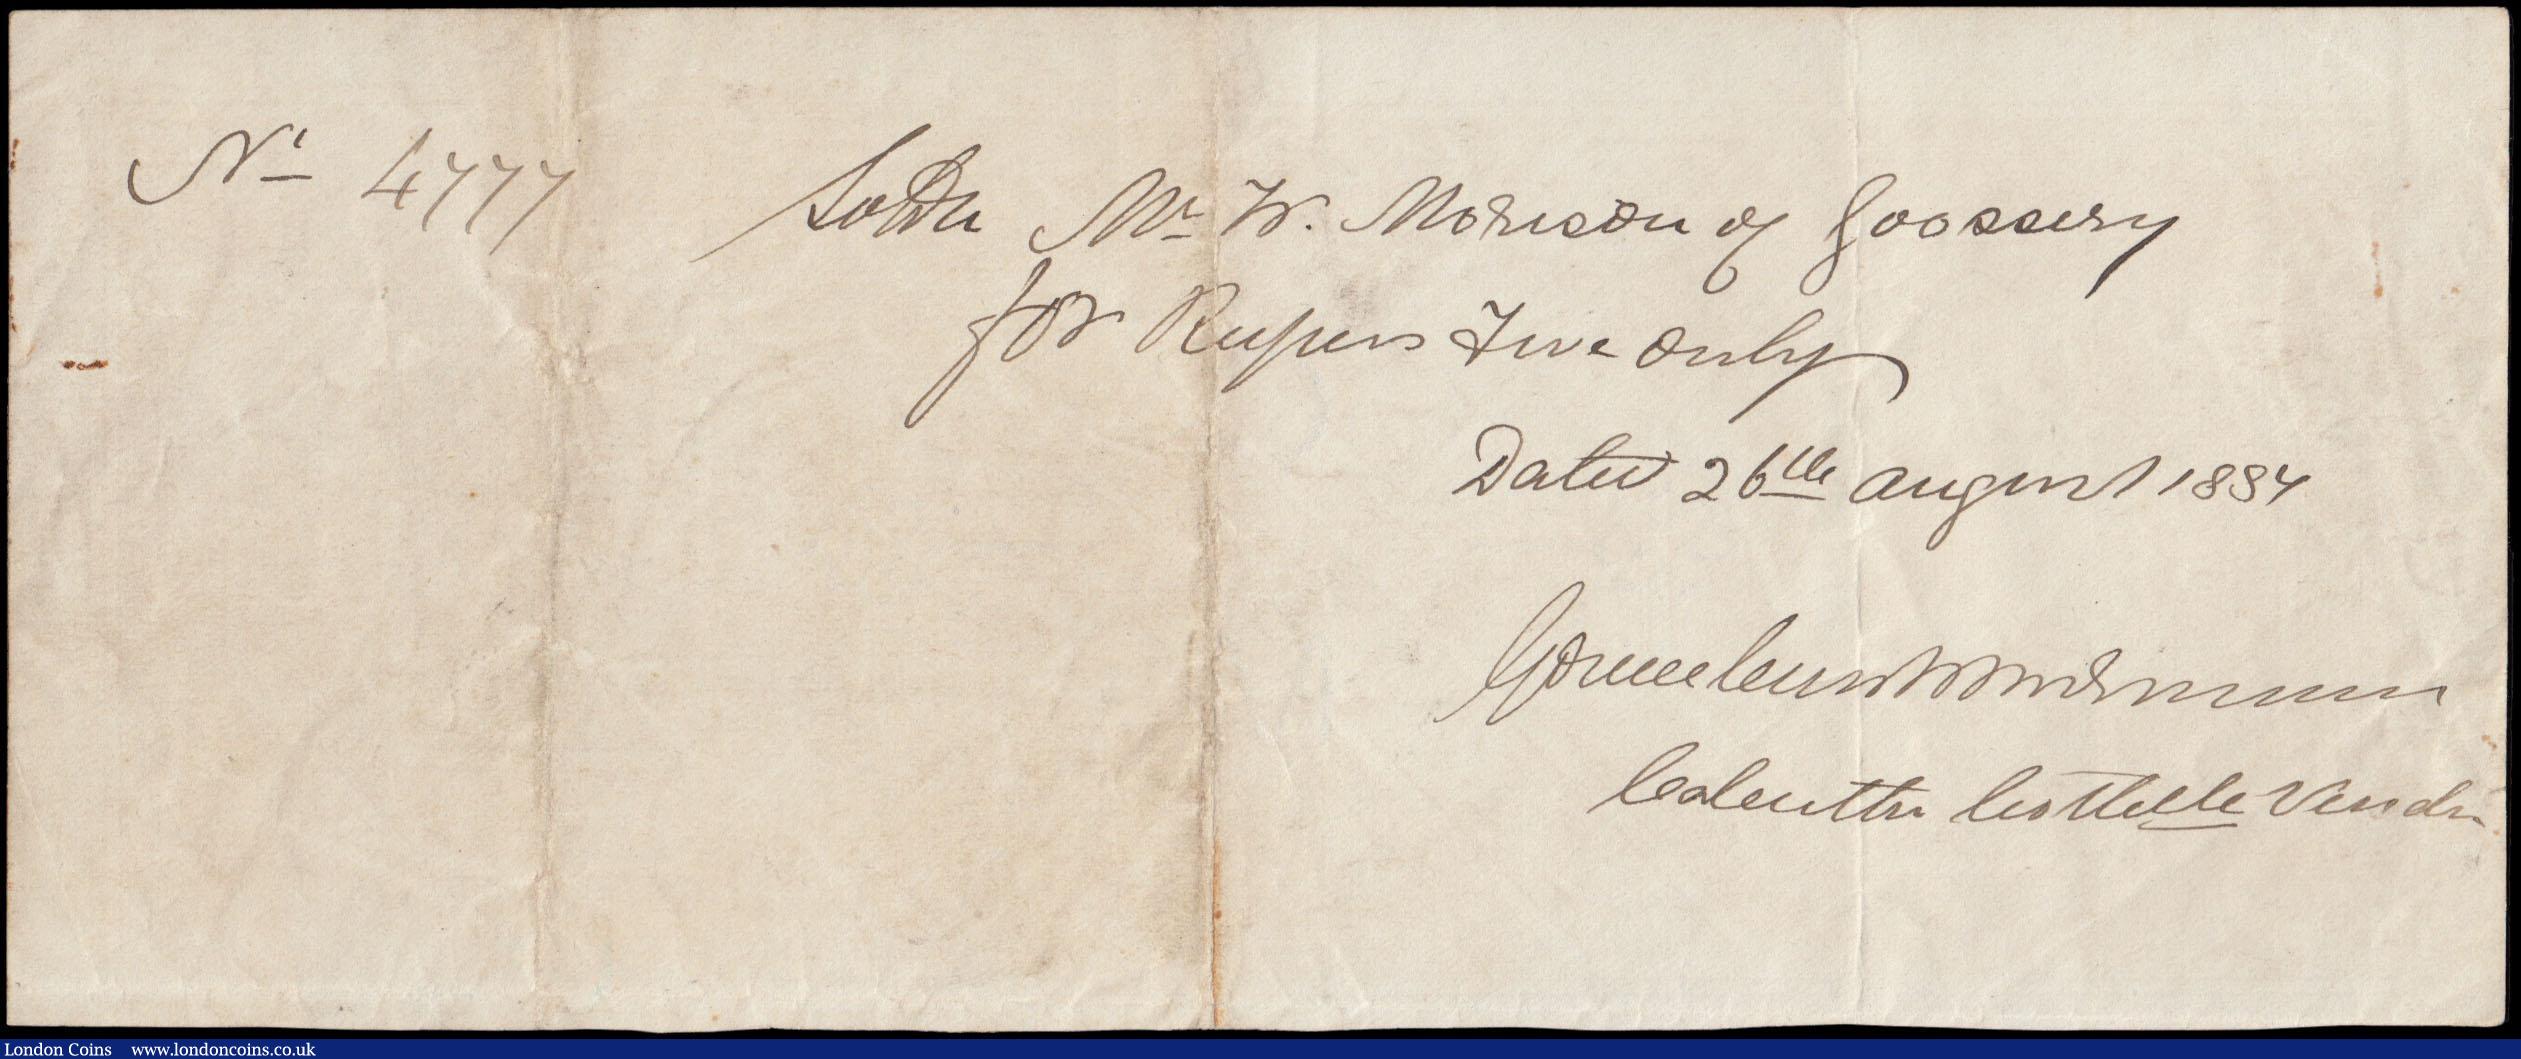 No 4777
Sold to Mr W. Morison of Goossery
for Rupees Five only
Dated 26th August 1884
Calcutta Collte Vendr
London Coins www.londoncoins.co.uk